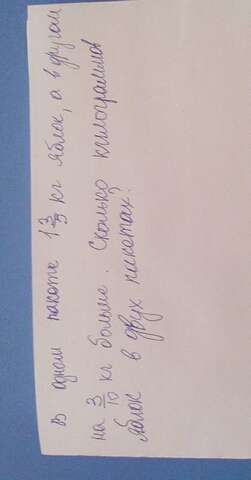 В одном пакете 1 3/5 кг яблок, а в другом
на 3/10 кг больше. Сколько килограммов
яблок в двух пакетах?